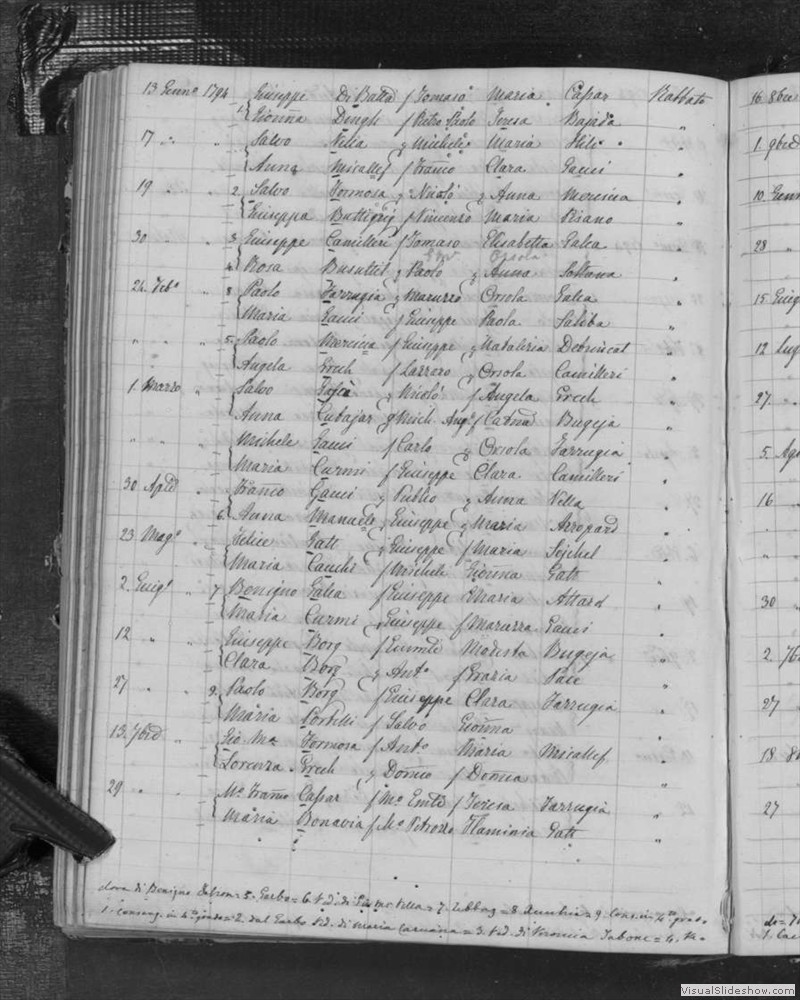 13 Genn.o 1794 Giuseppe Di Batta f Tomaso Maria Cassar Rabbato 16 8bre
1 Gionna Dingli f Pietro Paolo Teresa Bajada "
17 " " Salvo Vella q Michele Maria Xili " 1. 9bre
Anna Micallef f Franco Clara Gauci "
19 " " 2. Salvo Formosa q Nicolò q Anna Mercieca " 10. Genn
Giuseppa Buttigieg f Vincenzo Maria Pisano "
30 " " 3 Giuseppe Camilleri f Tomaso Elisabetta Galea " 28 "
Orsola
4 Rosa Busuttil q Paolo q Anna Soltana "
24. Feb.o " 8 Paolo Farrugia q Maruzzo Orsola Galea " 15 Giug
Maria Gauci f Giuseppe Paola Saliba "
" " " 5. Paolo Mercieca f Giuseppe q Mataleria Debrincat " 12 Lug
Angela Grech f Lazzoro q Orsola Camilleri "
1. Marzo " Salvo Safia q Nicolò f Angela Grech " 27. "
Anna Cubajar q Mich. Ang.o f Catna Bugeja "
" " " Michele Gauci f Carlo q Orsola Farrugia " 5. Ago
Maria Curmi f Giuseppe Clara Camilleri "
30 Aple " Franco Gauci q Publio q Anna Vella " 16 "
6. Anna Manuele q Giuseppe q Maria Azzopard "
23. Mag.o " Felice Gatt q Giuseppe f Maria Sejchel "
Maria Cauchi f Michele Gionna Gatt "
2. Giug.o " 7 Benigno Galea f Giuseppe Maria Attard " 30 "
Maria Curmi q Giuseppe f Maruzza Gauci "
12 " " Giuseppe Borg f Modesta Bugeja " 2. 7b
Clara Borg q Ant.o f Grazia Pace "
27 " " 9. Paolo Borg f Giuseppe Clara Farrugia " 27 "
Maria Portelli f Salvo Gionna "
13. 7bre " Gio Ma Formosa f Ant.o Maria Micallef " 18. 8b
Lorenza Grech q Domco f Domca "
29 " M.o Franco Cassar f M.o f Teresa Farrugia " 27
Maria Bonavia f M.o Petrozzo Flaminia Gatt "
di Benigno = 5. Garbo = 6. Vd. di Vella = 7. Zebbug = 8. = 9. Cons. in 4.to grado
1. Consang. in 4.to grado = 2. dal Garbo Vd. di Maria Caruana = 3. Vd. di Veronica Tabone = 4. Ve
VisualSlideshow.com